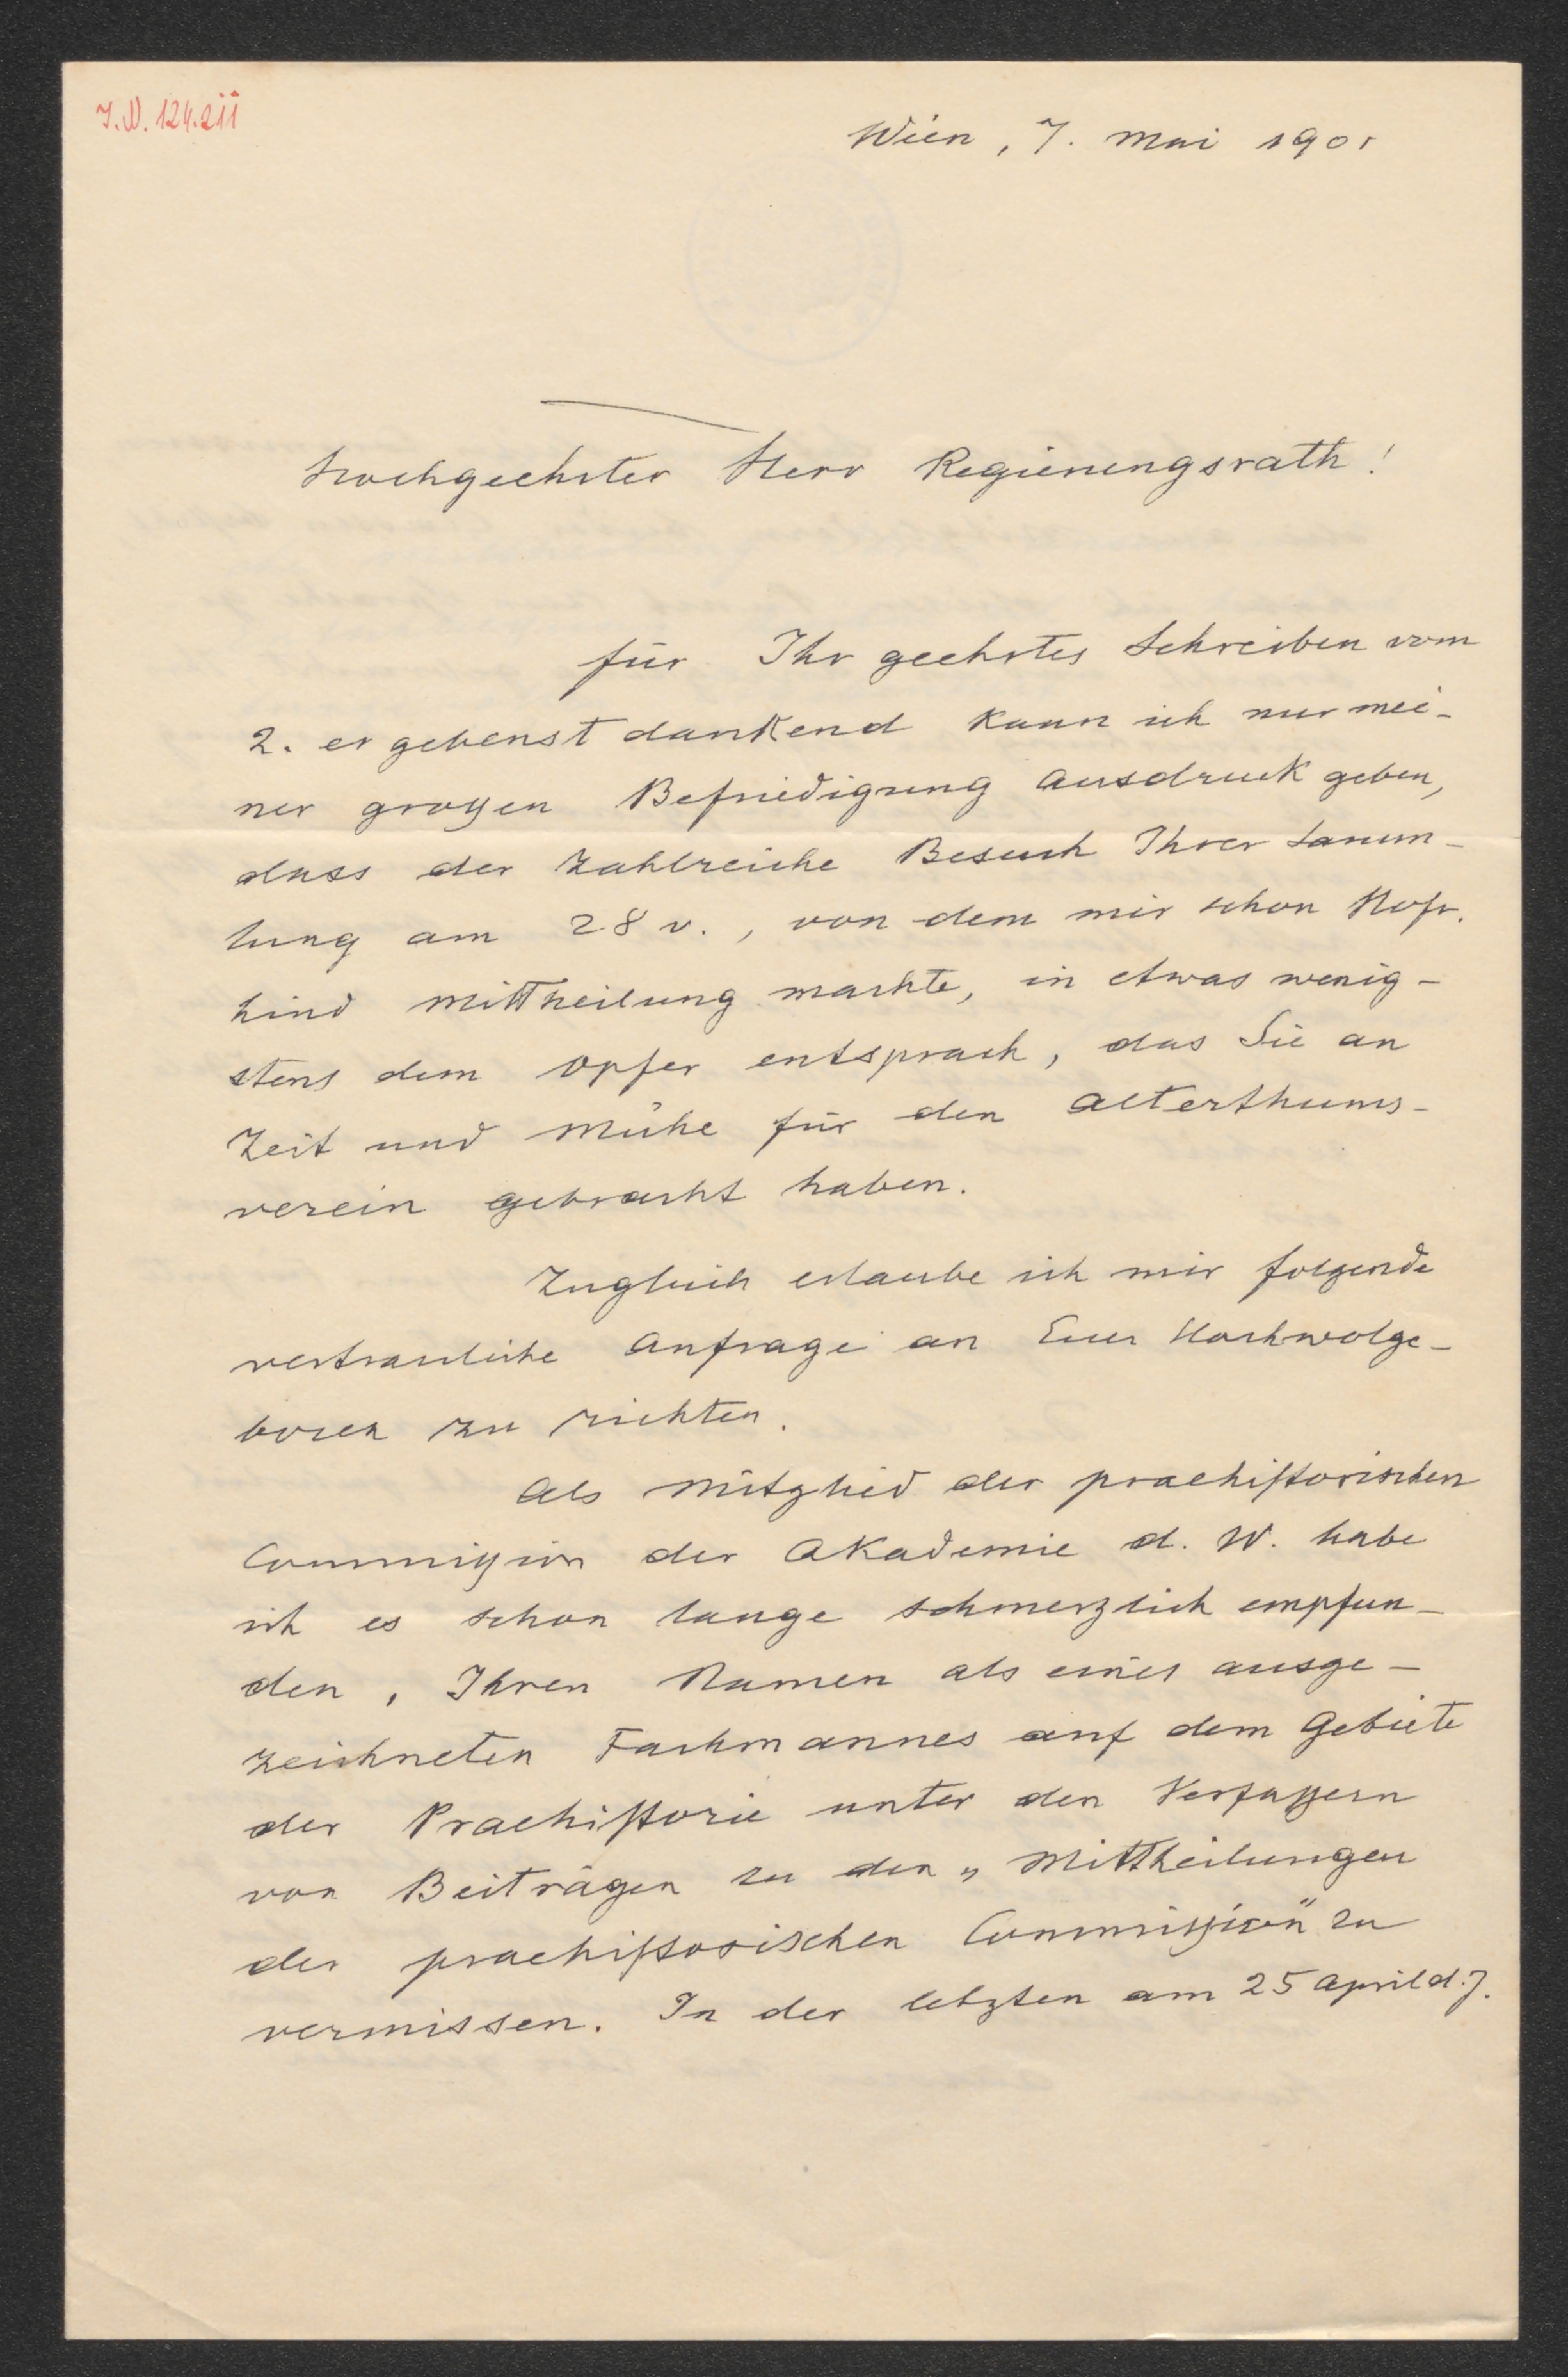 I.N. 124.211
Wien, 7. Mai 1901
Hochgeehrter Herr Regierungsrath!
für Ihr geehrtes Schreiben vom
2. ergebenst dankend kann ich nur mei-
ner großen Befriedigung Ausdruck geben,
dass der zahlreiche Besuch Ihrer Samm-
lung am 28 v., von dem mir schon Hofr.
Lind Mittheilung machte, in etwas wenig-
stens dem Opfer entsprach, das Sie an
Zeit und Mühe für den Alterthums-
verein gebracht haben.
Zugleich erlaube ich mir folgende
vertrauliche Anfrage an Euer Hochwolge-
boren zu richten.
Als Mitglied der praehistorischen
Commißion der Akademie d. W. habe
ich es schon lange schmerzlich empfun-
den, Ihren Namen als eines ausge-
zeichneten Fachmannes auf dem Gebiete
der Praehistorie unter den Verfaßern
von Beiträgen zu den „Mittheilungen
der praehistorischen Commißion" zu
vermissen. In der letzten am 25 April d. J.